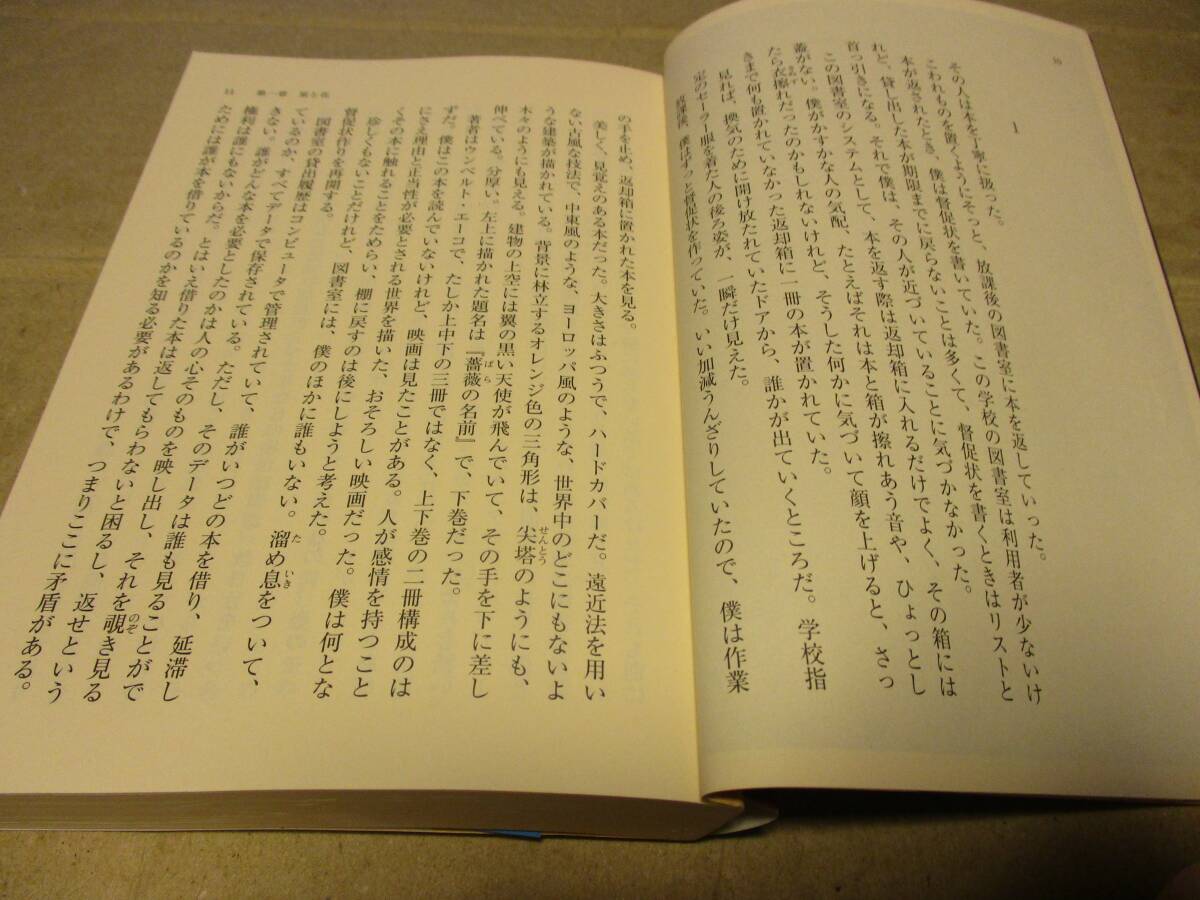 10
1
その人は本を丁寧に扱った。
こわれものを置くようにそっと、放課後の図書室に本を返していった。
本が返されたとき、僕は督促状を書いていた。この学校の図書室は利用者が少ないけ
れど、貸し出した本が期限までに戻らないことは多くて、督促状を書くときはリストと
首っ引きになる。それで僕は、その人が近づいていることに気づかなかった。
この図書室のシステムとして、本を返す際は返却箱に入れるだけでよく、その箱には
蓋がない。僕がかすかな人の気配、たとえばそれは本と箱が擦れあう音や、ひょっとし
たら衣擦れだったのかもしれないけれど、そうした何かに気づいて顔を上げると、さっ
きまで何も置かれていなかった返却箱に一冊の本が置かれていた。
見れば、換気のために開け放たれていたドアから、誰かが出ていくところだ。学校指
定のセーラー服を着た人の後ろ姿が、一瞬だけ見えた。
放課後、僕はずっと督促状を作っていた。いい加減うんざりしていたので、僕は作業
の手を止め、返却箱に置かれた本を見る。
美しく、見覚えのある本だった。大きさはふつうで、ハードカバーだ。遠近法を用い
ない古風な技法で、中東風のような、ヨーロッパ風のような、世界中のどこにもないよ
うな建築が描かれている。背景に林立するオレンジ色の三角形は、尖塔のようにも、
木々のようにも見える。建物の上空には翼の黒い天使が飛んでいて、その手を下に差し
伸べている。分厚い。左上に描かれた題名は『薔薇の名前』で、下巻だった。
著者はウンベルト・エーコで、たしか上中下の三冊ではなく、上下巻の二冊構成のは
ずだ。僕はこの本を読んでいないけれど、映画は見たことがある。人が感情を持つこと
にさえ理由と正当性が必要とされる世界を描いた、おそろしい映画だった。僕は何とな
くその本に触れることをためらい、棚に戻すのは後にしようと考えた。
珍しくもないことだけれど、図書室には、僕のほかに誰もいない。溜め息をついて、
督促状作りを再開する。
図書室の貸出履歴はコンピュータで管理されていて、誰がいつどの本を借り、延滞し
ているのか、すべてデータで保存されている。ただし、そのデータは誰も見ることがで
きない。誰がどんな本を必要としたのかは人の心そのものを映し出し、それを覗き見る
権利は誰にもないからだ。とはいえ借りた本は返してもらわないと困るし、返せという
ためには誰が本を借りているのかを知る必要があるわけで、つまりここに矛盾がある。
11 第一章